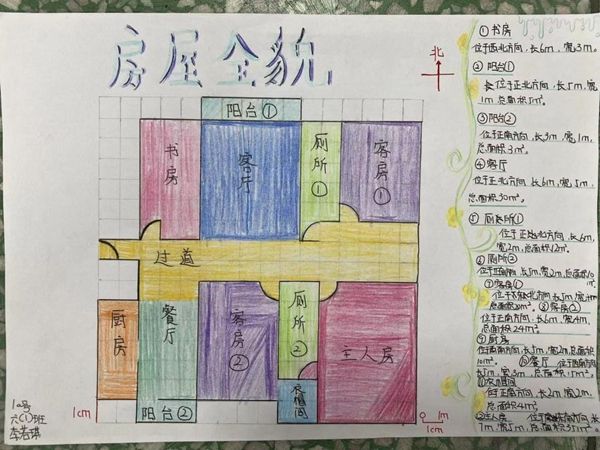 房屋全貌
北
阳台①
书房
客厅
厕所①
客房①
过道
厨房
餐厅
客房②
厕所②
主人房
衣帽间
阳台②
1cm
0 1m
1cm
10号
六(1)班
①书房
位于西北方向,长6m,宽3m。
②阳台①
位于正北方向,长5m,宽
1m,总面积5m²。
③阳台②
位于正南方向,长3m,宽1m,
总面积3m²。
④客厅
位于正北方向,长6m,宽5m,
总面积30m²。
⑤厕所①
位于正北方向,长6m,
宽2m,总面积12m²。
⑥厕所②
位于正南方向,长5m,宽2m,总面积10m²。
⑦客房①
⑧客房②
位于正南方向,长6m,宽4m,
总面积24m²。
⑨厨房
位于西南方向,长5m,宽2m,总面积
10m²。⑩餐厅
长5m,宽3m,总面积15m²。
⑪衣帽间
位于正南方向,长2m,宽2m,
总面积4m²。
⑫主人房
7m,宽5m,总面积35m²。